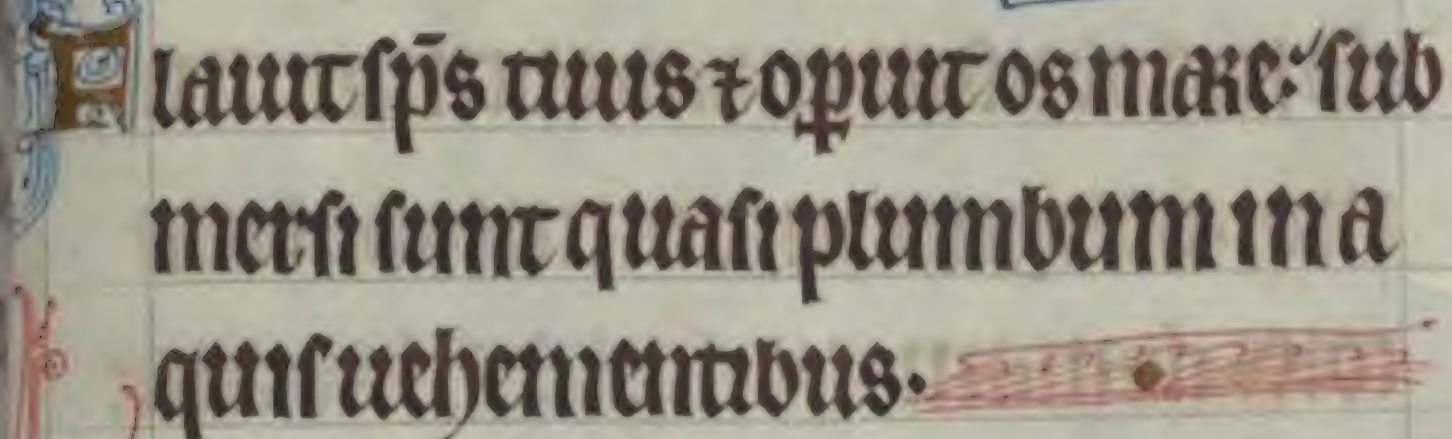 Flauit ſp̄s tuus ⁊ oꝑuit os mare: ſub
merſi ſunt quaſi plumbum in a
quiſ uehementibus.